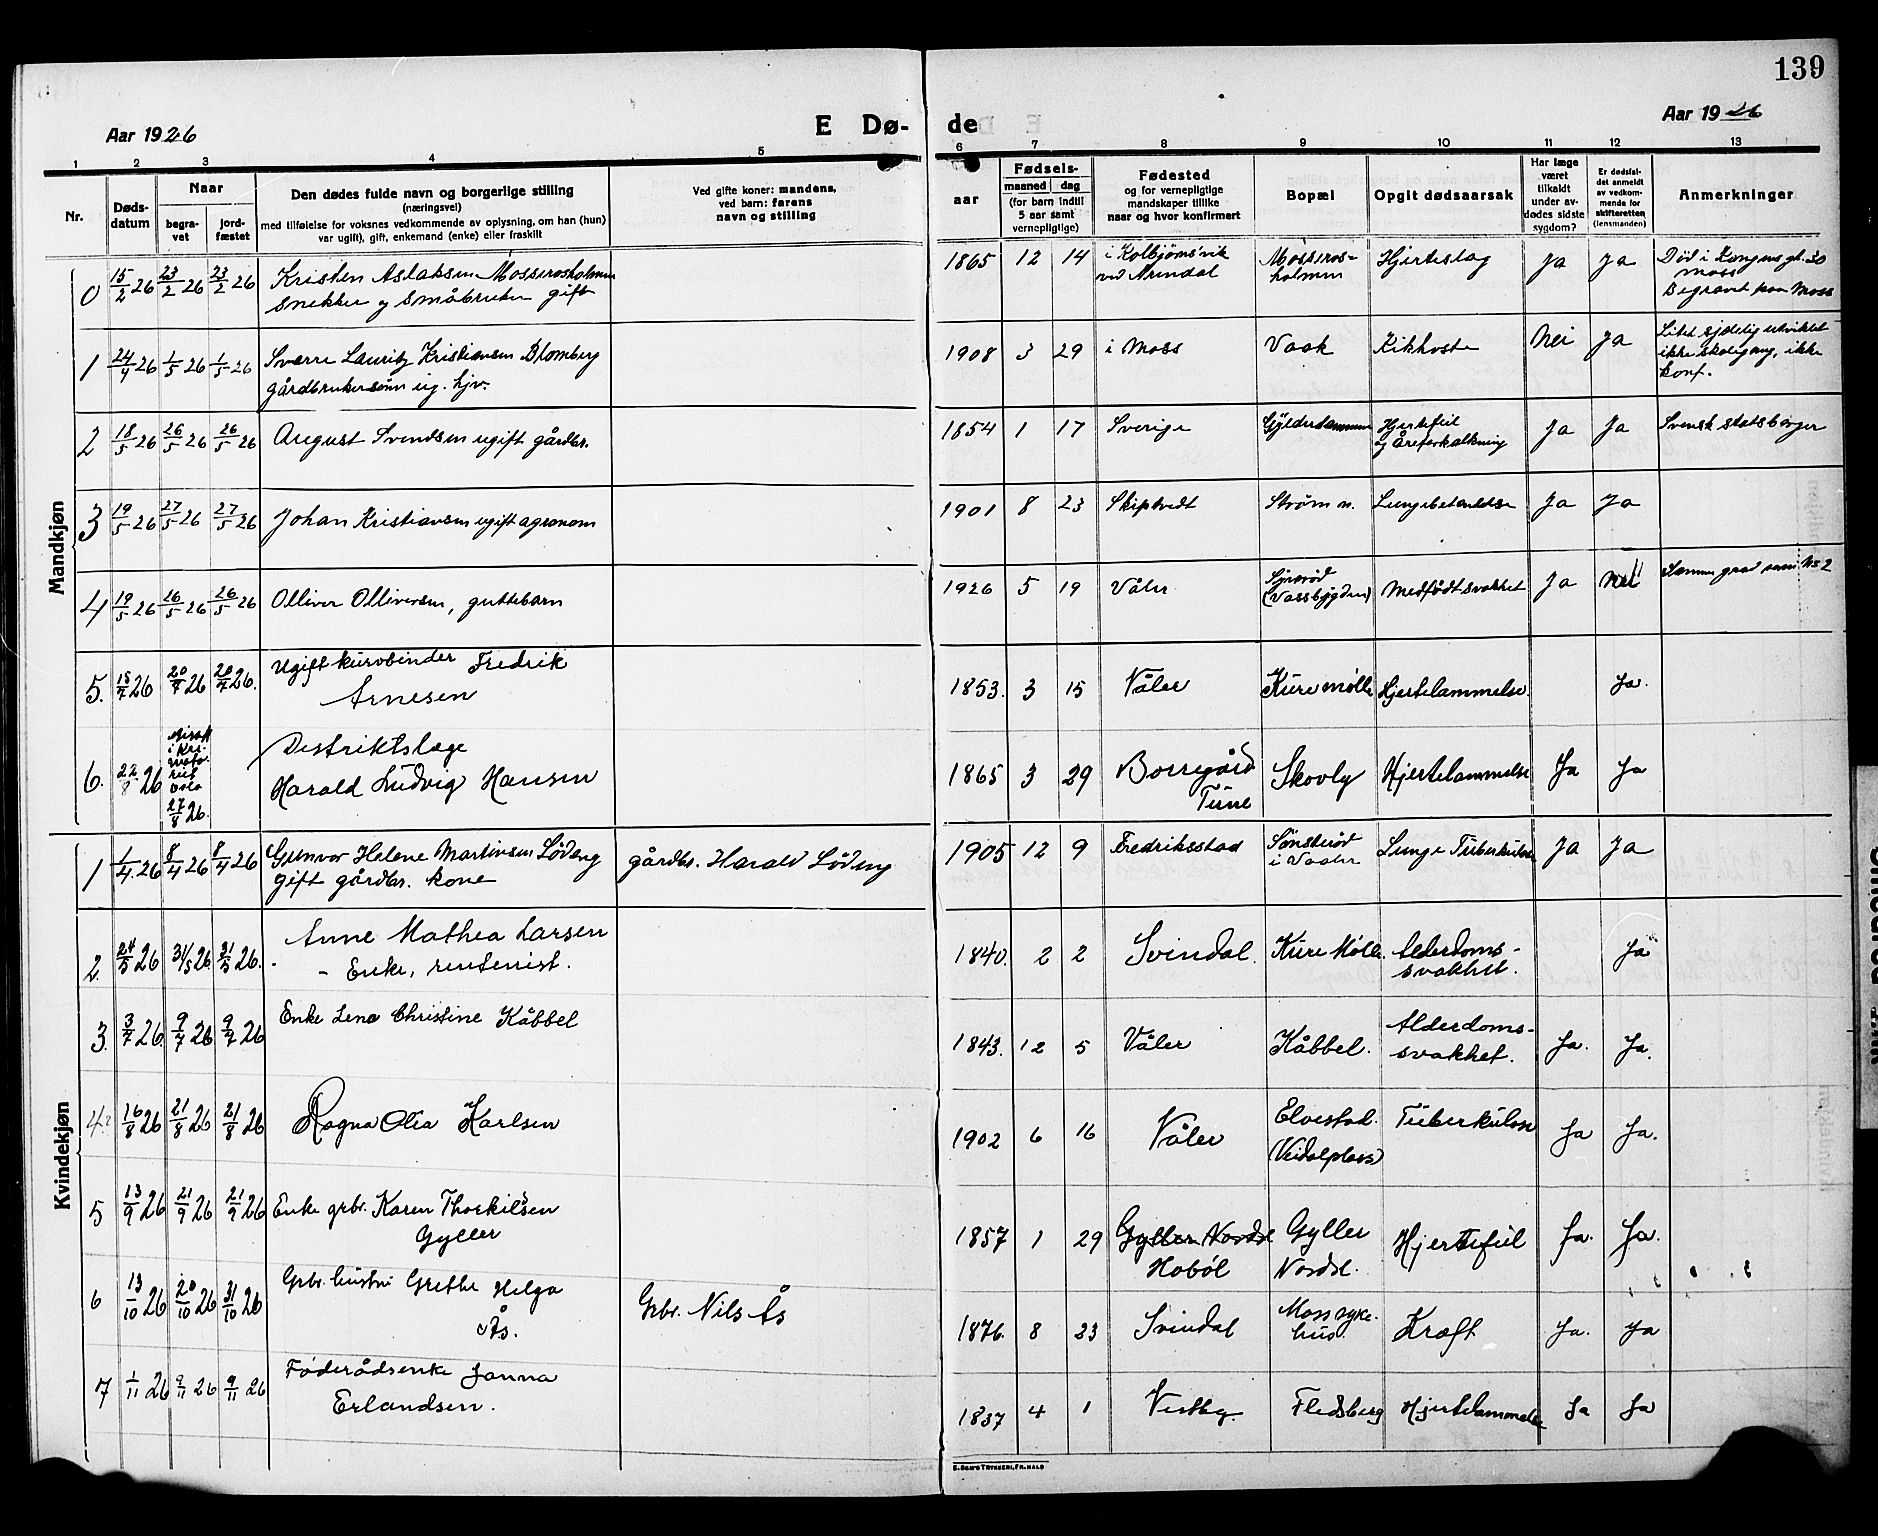 139
Aar 1926
E Dø-
de
Aar 1926
1 2 3 4 5 6 7 8 9 10 11 12 13
Nr.
Døds-
datum
Naar
begra-
vet
jord-
fæstet
Den dødes fulde navn og borgerlige stilling
(næringsvei)
med tilføielse for voksnes vedkommende av oplysning, om han (hun)
var ugift, gift, enkemand (enke) eller fraskilt
Ved gifte koner: mandens,
ved barn: farens
navn og stilling
Fødsels-
aar
maaned dag
(for barn indtil
5 aar samt
vernepligtige)
Fødested
og for vernepligtige
mandskaper tillike
naar og hvor konfirmert
Bopæl
Opgit dødsaarsak
Har læge
været
tilkaldt
under av-
dødes sidste
sygdom?
Er dødsfal-
det anmeldt
av vedkom-
mende for
skifteretten
(lensmanden)
Anmerkninger
Mandkjøn
0 15/2 26 23/2 26 23/2 26 Kristen Aslaksen Mosserosholmen 1865 12 14 i Kolbjørnsvik Mosseros- Hjerteslag Ja Ja Død i Kongens gt. 30
snekker og småbruker gift ved Arendal holmen Moss
Begravet paa Moss
1 24/4 26 1/5 26 1/5 26 Sverre Lauritz Kristiansen Blomberg 1908 3 29 i Moss Vaak Kikhoste Nei Ja Litet sjælelig utviklet
gårdbrukersønn ug. hjv. ikke skolegang, ikke
konf.
2 18/5 26 26/5 26 26/5 26 August Svendsen ugift gårdbr. 1854 1 17 Sverige Gylderdammen Hjertefeil Ja Ja Svensk statsborger
og åreforkalkning
3 19/5 26 27/5 26 27/5 26 Johan Kristiansen ugift agronom 1901 8 23 Skiptvedt Strøm n. Lungebetændelse Ja Ja
4 19/5 26 26/5 26 26/5 26 Olliver Olliversen, guttebarn 1926 5 19 Våler (Vassbygden) Medfødt svakhet Ja Nei Samme grav som No 2
5. 15/7 26 20/7 26 20/7 26. Ugift kurvbinder Fredrik
Arnesen 1853. 3 15 Våler Kure mølle Hjertelammelse. Ja.
6. 22/8 26 i Kre-
mato-
riet
Oslo
27/8 26. Distriktslæge
Harald Ludvig Hansen 1865 3 29 Borregård Skovly Hjertelammelse Ja Ja
Tune
Kvindekjøn
1 1/4 26 8/4 26 8/4 26 Gunvor Helene Martinsen Lødeng gårdbr. Harald Lødeng 1905 12 9 Fredriksstad Sønsterød Lunge Tuberkulose Ja Ja
gift gårdbr. kone i Vaaler
2 24/5 26 31/5 26 31/5 26. Anne Mathea Larsen 1840. 2 2 Svindal. Kure Mølle. Alderdoms- Ja
- Enke, rentenist. svakhet.
3. 3/7 26. 9/7 26 9/7 26 Enke Lena Christine Kåbbel 1843. 12 5 Våler Kåbbel. Alderdoms- Ja. Ja.
svakhet.
4 16/8 26 21/8 26 21/8 26 Ragna Olea Karlsen 1902 6 16 Våler Elvestad. Tuberkulose Ja Ja.
(Veidalplass)
5 13/9 26 21/9 26 21/9 26 Enke grbr. Karen Thorkilsen
Gyller 1857 1 29 Gyller Nordr. Gyller Hjertefeil Ja. Ja.
Hobøl Nordr.
6 13/10 26 20/10 26 31/10 26 Grbr. hustru Grethe Helga
Ås. Grbr. Nils Ås 1876. 8 23 Svindal Moss syke- Kræft Ja. Ja
hus.
7 1/11 26 9/11 26 9/11 26 Føderådsenke Janna
Erlandsen. 1837 4 1 Vestby. Fledsberg Hjertelammelse Ja Ja